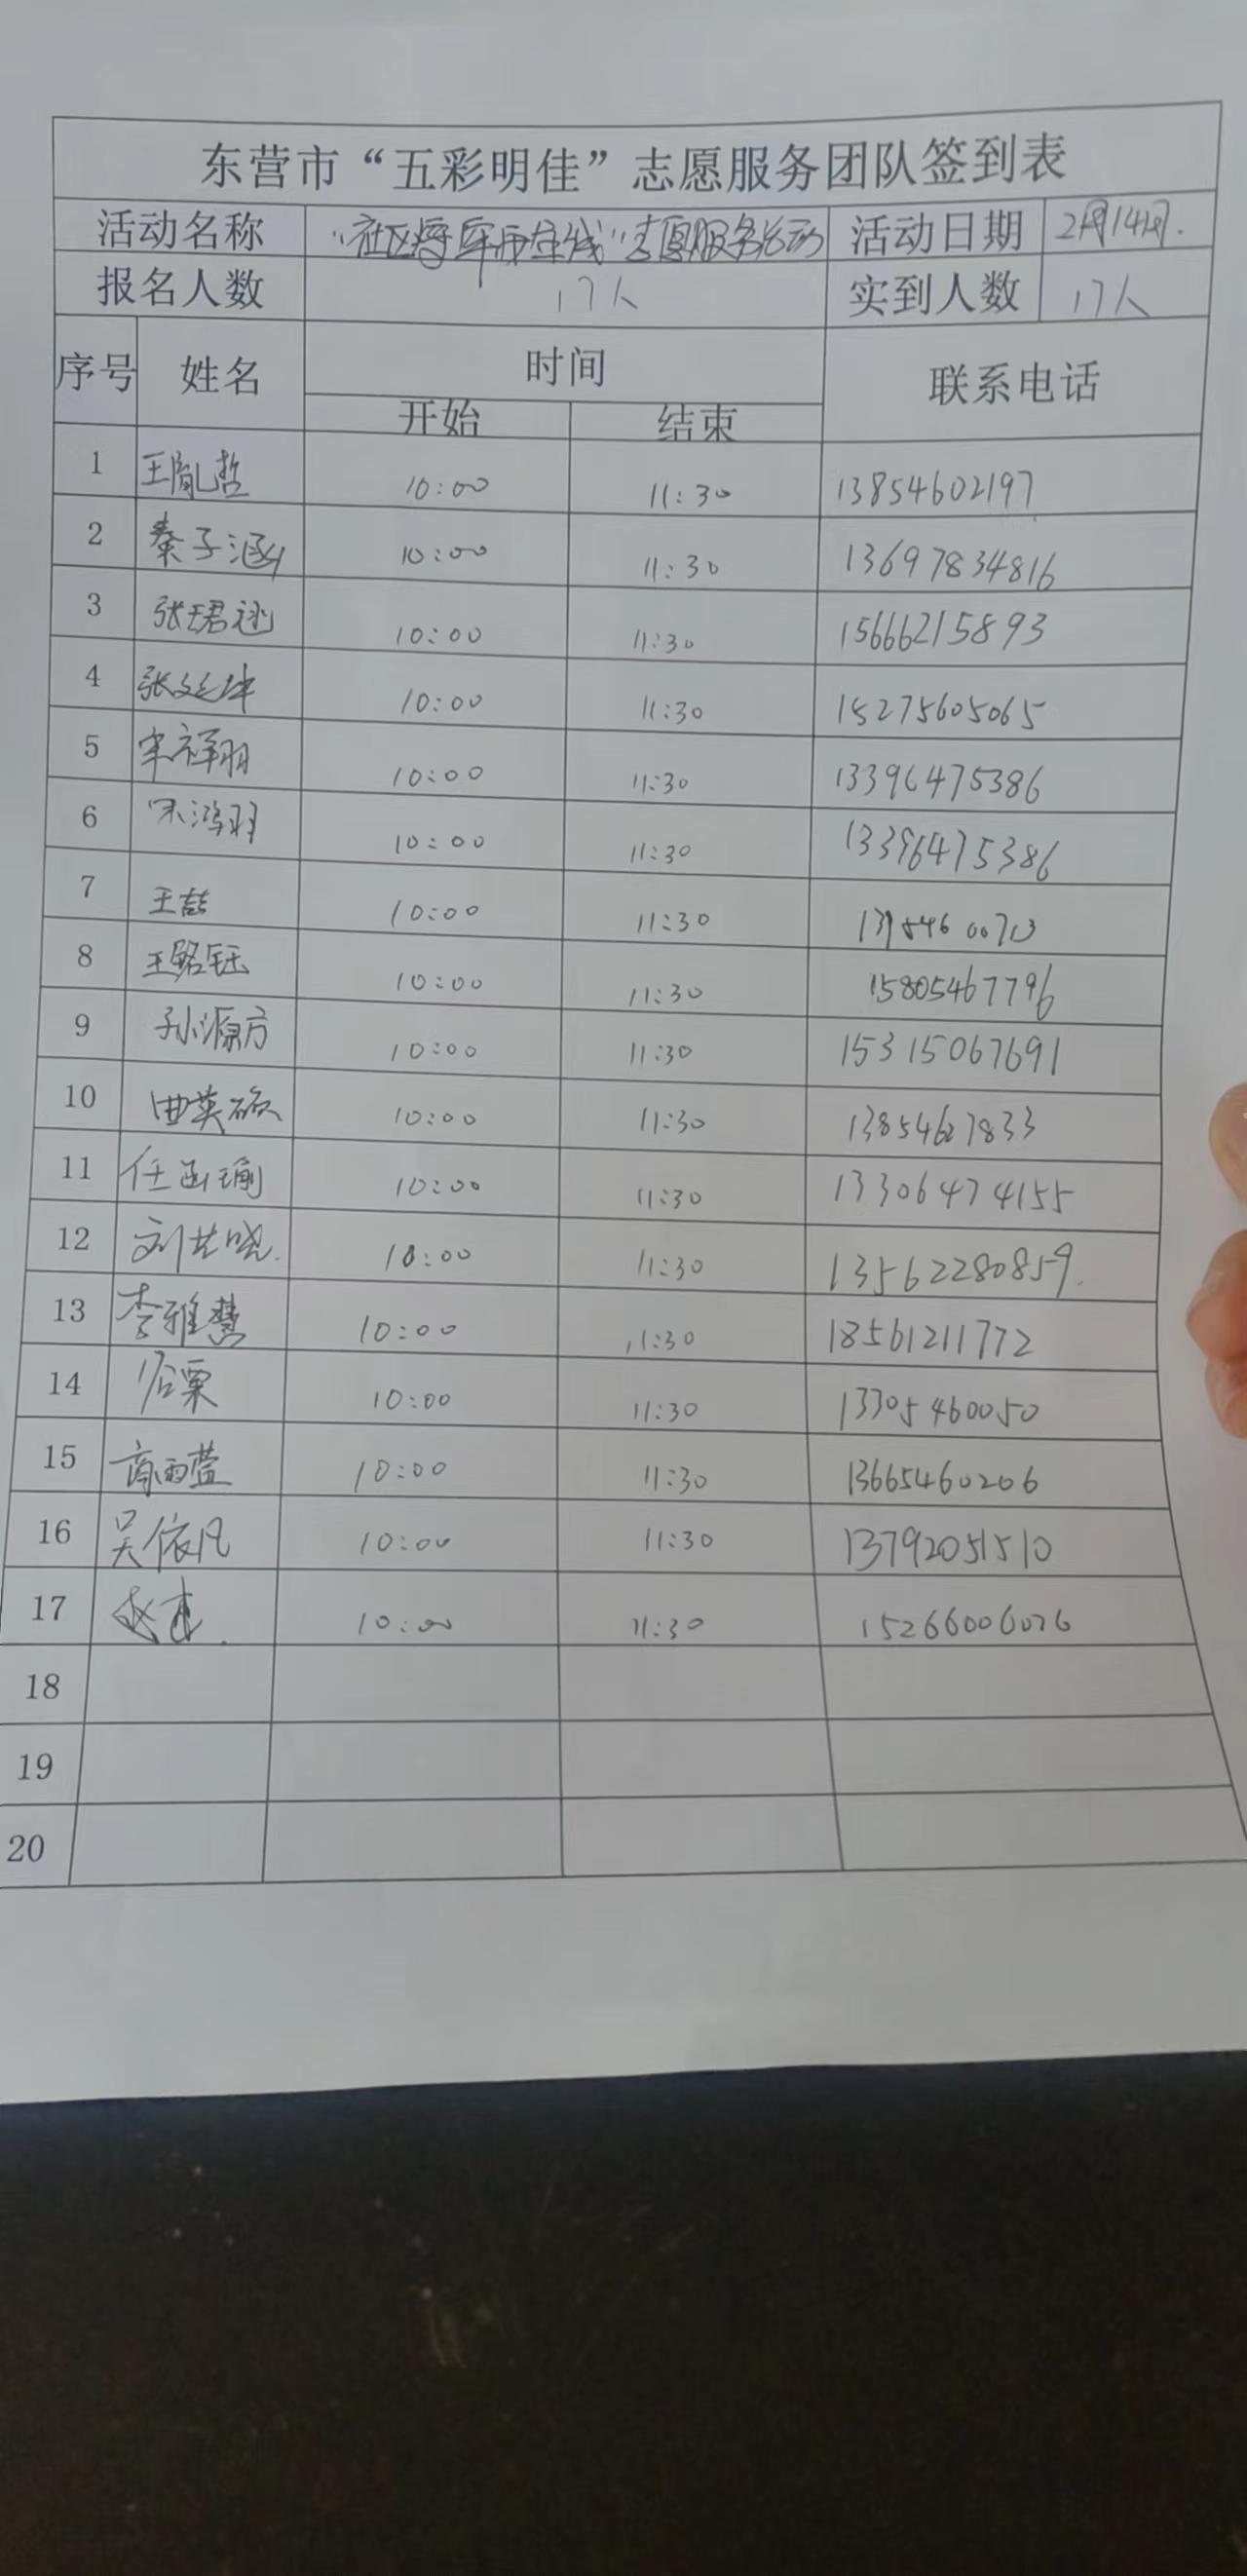 东营市“五彩明佳”志愿服务团队签到表
活动名称 “社区 在线”志愿服务活动 活动日期 2月14日.
报名人数 17人 实到人数 17人
序号 姓名 时间 联系电话
开始 结束
1 王胤哲 10:00 11:30 13854602197
2 秦子涵 10:00 11:30 13697834816
3 张珺 10:00 11:30 15666215893
4 张延坤 10:00 11:30 15275605065
5 宋祥羽 10:00 11:30 13396475386
6 宋鸿羽 10:00 11:30 13396475386
7 王喆 10:00 11:30
8 王铭钰 10:00 11:30 15805467796
9 孙源方 10:00 11:30 15315067691
10 曲英硕 10:00 11:30 13854627833
11 任函瑜 10:00 11:30 13306474155
12 刘芸晓. 10:00 11:30 13562280859.
13 李雅慧 10:00 11:30 18561211772
14 10:00 11:30 13305460050
15 商雨萱 10:00 11:30 13665460206
16 吴依凡 10:00 11:30 13792051510
17 10:00 11:30 15266006026
18
19
20